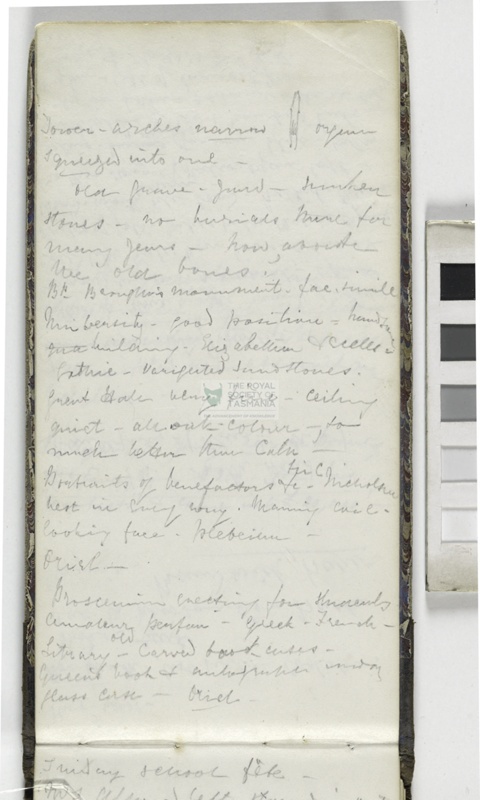 Tower - arches narrow organ
squeezed into one -
Old grave - yard - sunken
stones - no burials there for
many years - how about
the old bones?
Bp. Broughton's monument - fac-simile
University - good position - handsome
building - Elizabethan &
Gothic - Varigated Sandstones.
Great Hall - ceiling
quiet - all oak - colour - so
much better than
Portraits of benefactors &c - Sir C. Nicholson
best in every way. Manning
looking face. Plebeian -
Oriel -
Proscenium erecting for
amateur - Greek - French -
Library - Old carved book cases -
Queen's book & autograph under
glass case - Oriel -
THE ROYAL
SOCIETY OF
TASMANIA
Sunday school fête -